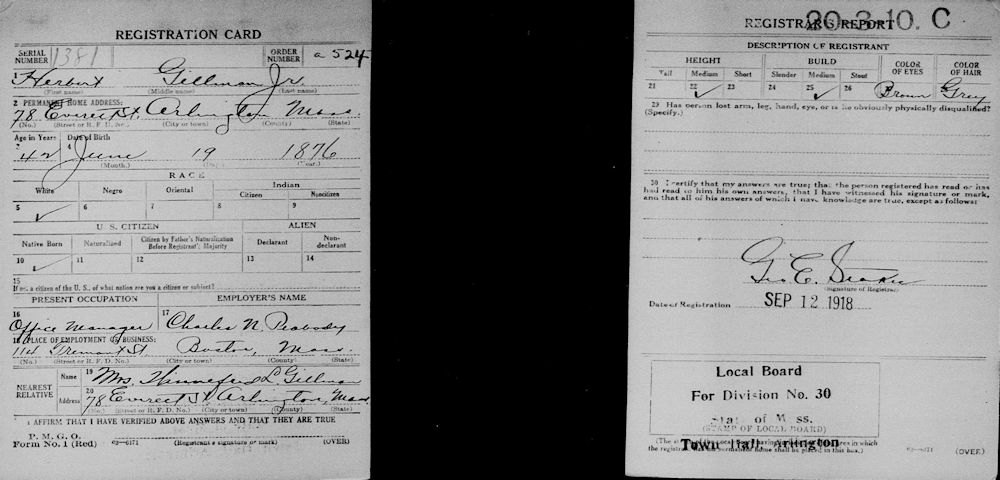 REGISTRATION CARD
SERIAL NUMBER 1381 ORDER NUMBER a 524
Herbert Gillman Jr.
(First name) (Middle name) (Last name)
2 PERMANENT HOME ADDRESS:
78 Everett St. Arlington Mass.
(No.) (Street or R. F. D. No.) (City or town) (County) (State)
Age in Years Date of Birth
3 4
42 June 19 1876
(Month.) (Year.)
RACE
White Negro Oriental Indian
Citizen Noncitizen
5 ✓ 6 7 8 9
U. S. CITIZEN ALIEN
Native Born Naturalized Citizen by Father's Naturalization Before Registrant's Majority Declarant Non-declarant
10 ✓ 11 12 13 14
15
If not a citizen of the U. S., of what nation are you a citizen or subject?
PRESENT OCCUPATION EMPLOYER'S NAME
16 17
Office Manager Charles N. Peabody
18 PLACE OF EMPLOYMENT OR BUSINESS:
114 Tremont St. Boston, Mass.
(No.) (Street or R. F. D. No.) (City or town) (County) (State)
NEAREST RELATIVE Name 19 Mrs. L. Gillman
Address 20 78 Everett St. Arlington, Mass.
(No.) (Street or R. F. D. No.) (City or town) (County) (State)
I AFFIRM THAT I HAVE VERIFIED ABOVE ANSWERS AND THAT THEY ARE TRUE
P. M. G. O.
Form No. 1 (Red) 03—6171 (Registrant's signature or mark) (OVER)
REGISTRAR'S REPORT 20-3-10. C
DESCRIPTION OF REGISTRANT
HEIGHT BUILD COLOR OF EYES COLOR OF HAIR
Tall Medium Short Slender Medium Stout
21 22 ✓ 23 24 25 ✓ 26 Brown Grey
29 Has person lost arm, leg, hand, eye, or is he obviously physically disqualified?
(Specify.)
30 I certify that my answers are true; that the person registered has read or has
had read to him his own answers, that I have witnessed his signature or mark,
and that all of his answers of which I have knowledge are true, except as follows:
Geo. E.
(Signature of Registrar)
Date of Registration SEP 12 1918
Local Board
For Division No. 30
State of Mass.
(STAMP OF LOCAL BOARD)
Town Hall, Arlington
03—6171 (OVER)